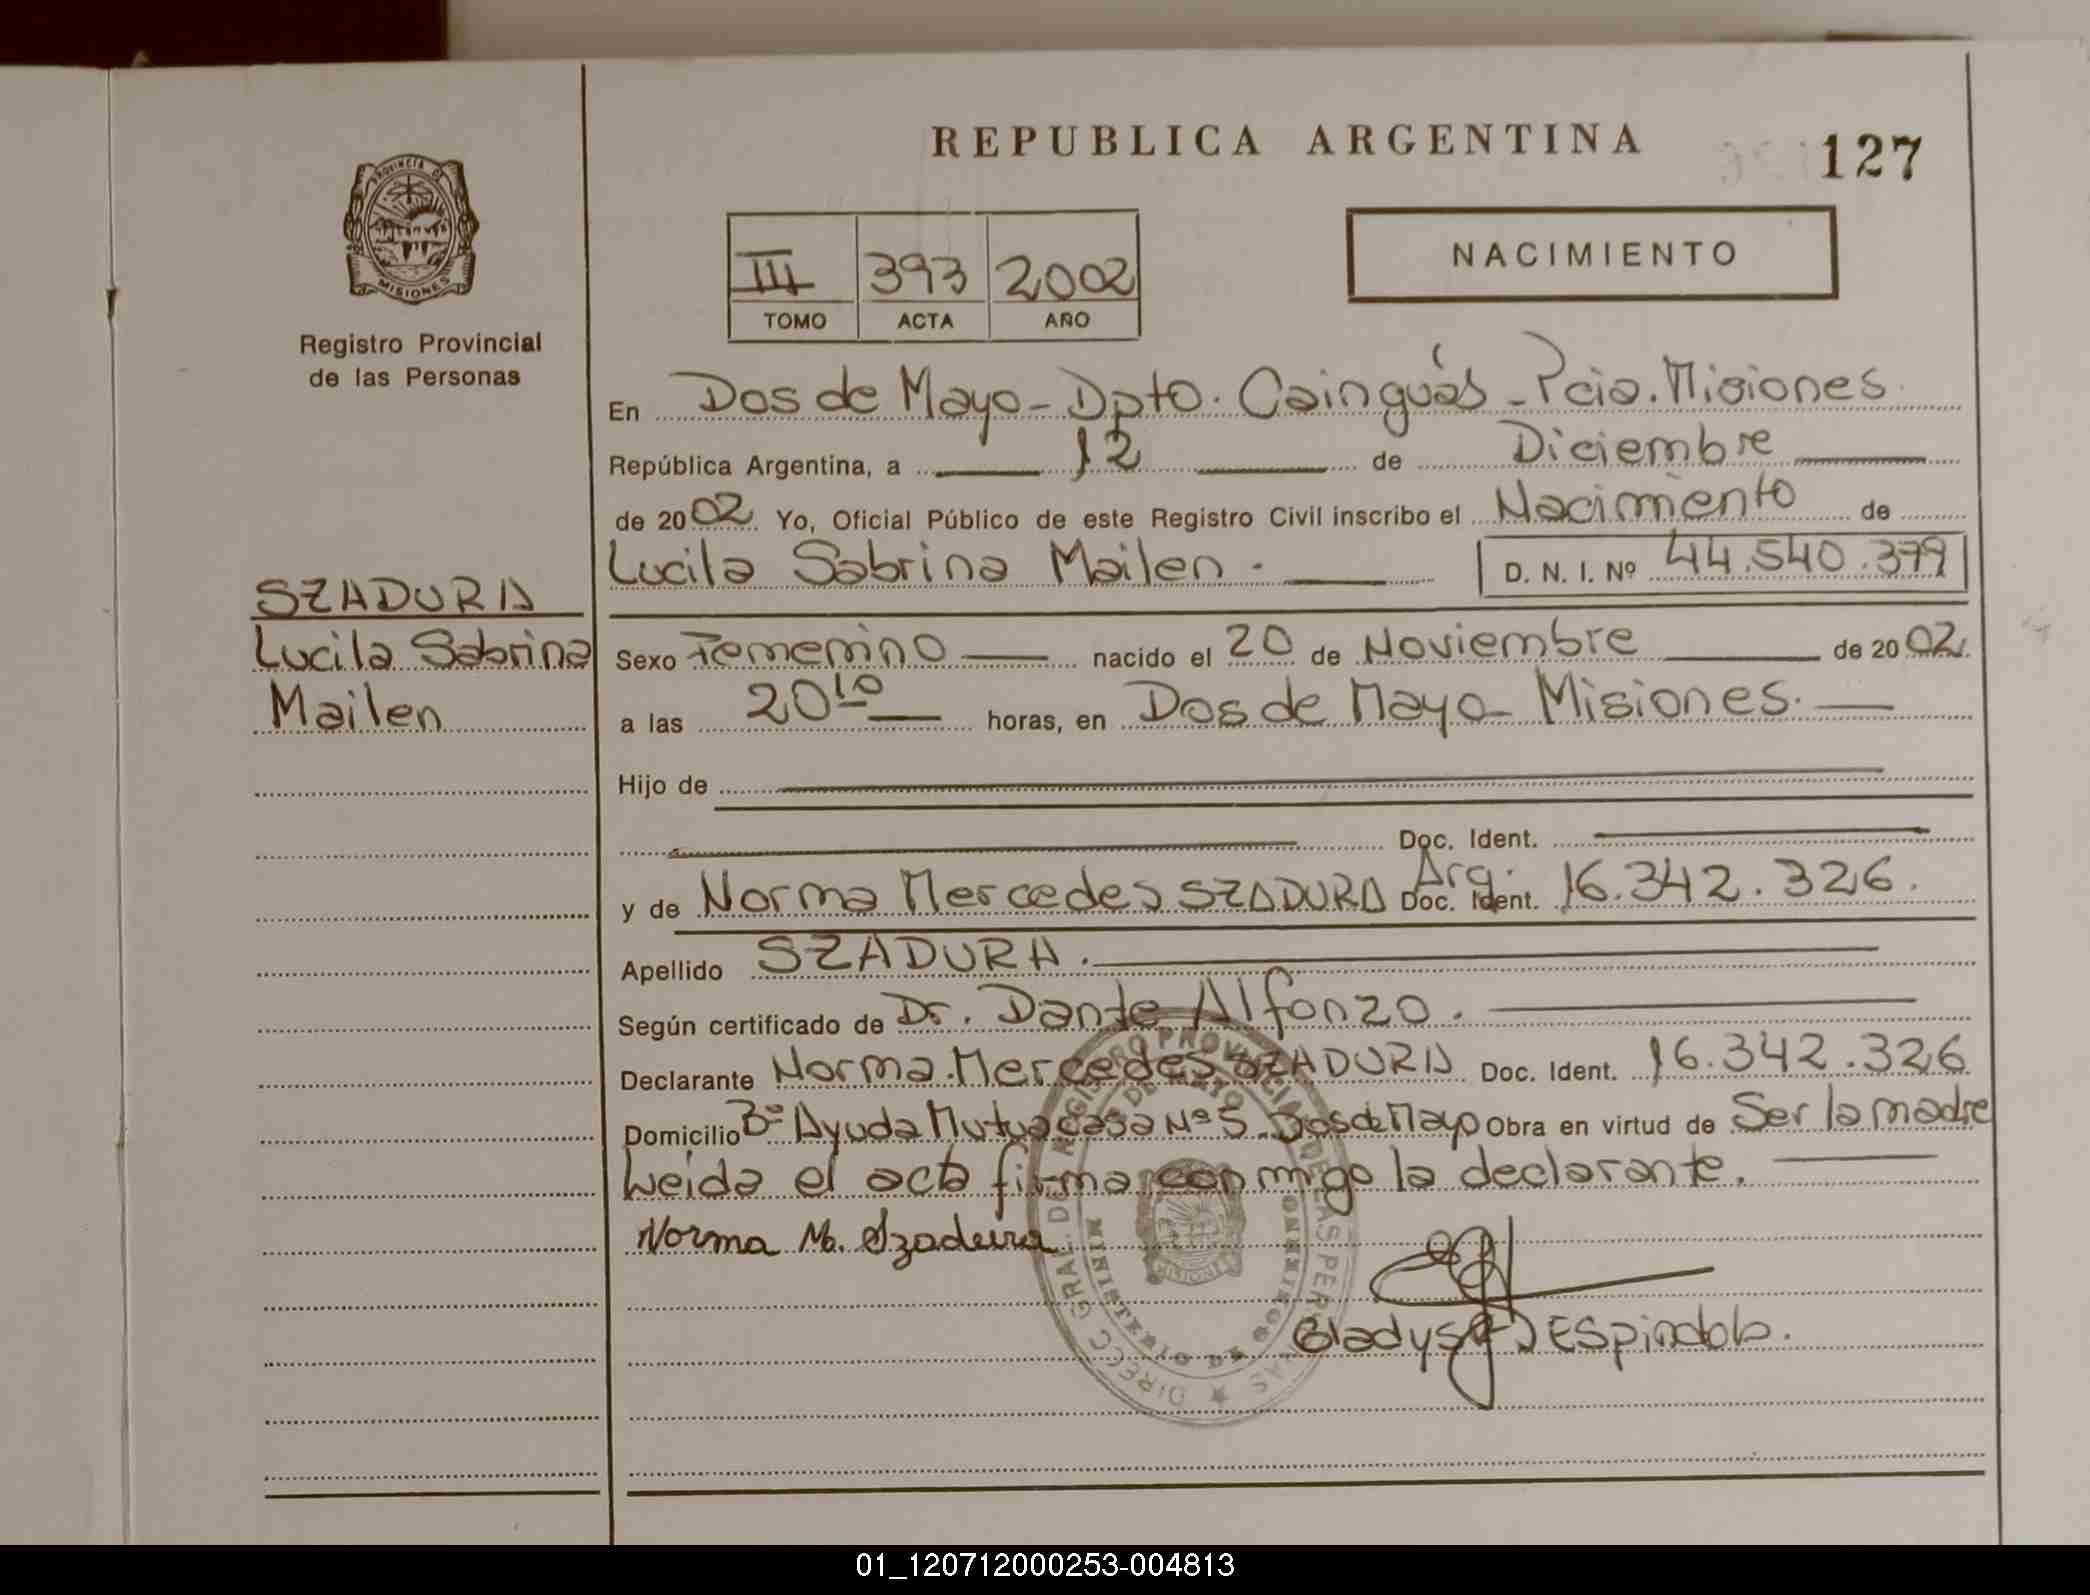 REPUBLICA ARGENTINA
127
PROVINCIA DE
MISIONES
Registro Provincial
de las Personas
III 393 2002
TOMO ACTA AÑO
NACIMIENTO
En Dos de Mayo - Dpto. Cainguás - Pcia. Misiones
República Argentina, a 12 de Diciembre
de 2002 Yo, Oficial Público de este Registro Civil inscribo el Nacimiento de
Lucila Sabrina Mailen. D. N. I. Nº 44.540.379
SZADURA
Lucila Sabrina
Mailen
Sexo Femenino nacido el 20 de Noviembre de 2002.
a las 20 10 horas, en Dos de Mayo - Misiones.
Hijo de
Doc. Ident.
y de Norma Mercedes SZADURA Doc. Ident. Arg. 16.342.326.
Apellido SZADURA.
Según certificado de Dr. Dante Alfonzo.
Declarante Norma Mercedes SZADURA Doc. Ident. 16.342.326
Domicilio Bº Ayuda Mutua casa Nº 5 Dos de Mayo Obra en virtud de Ser la madre
Leida el acta firma conmigo la declarante.
Norma M. Szadura
Gladys J ESpindola.
DIRECC GRAL. DEL REGISTRO PROVINCIAL DE LAS PERSONAS
MINISTERIO DE GOBIERNO
MISIONES
01_120712000253-004813